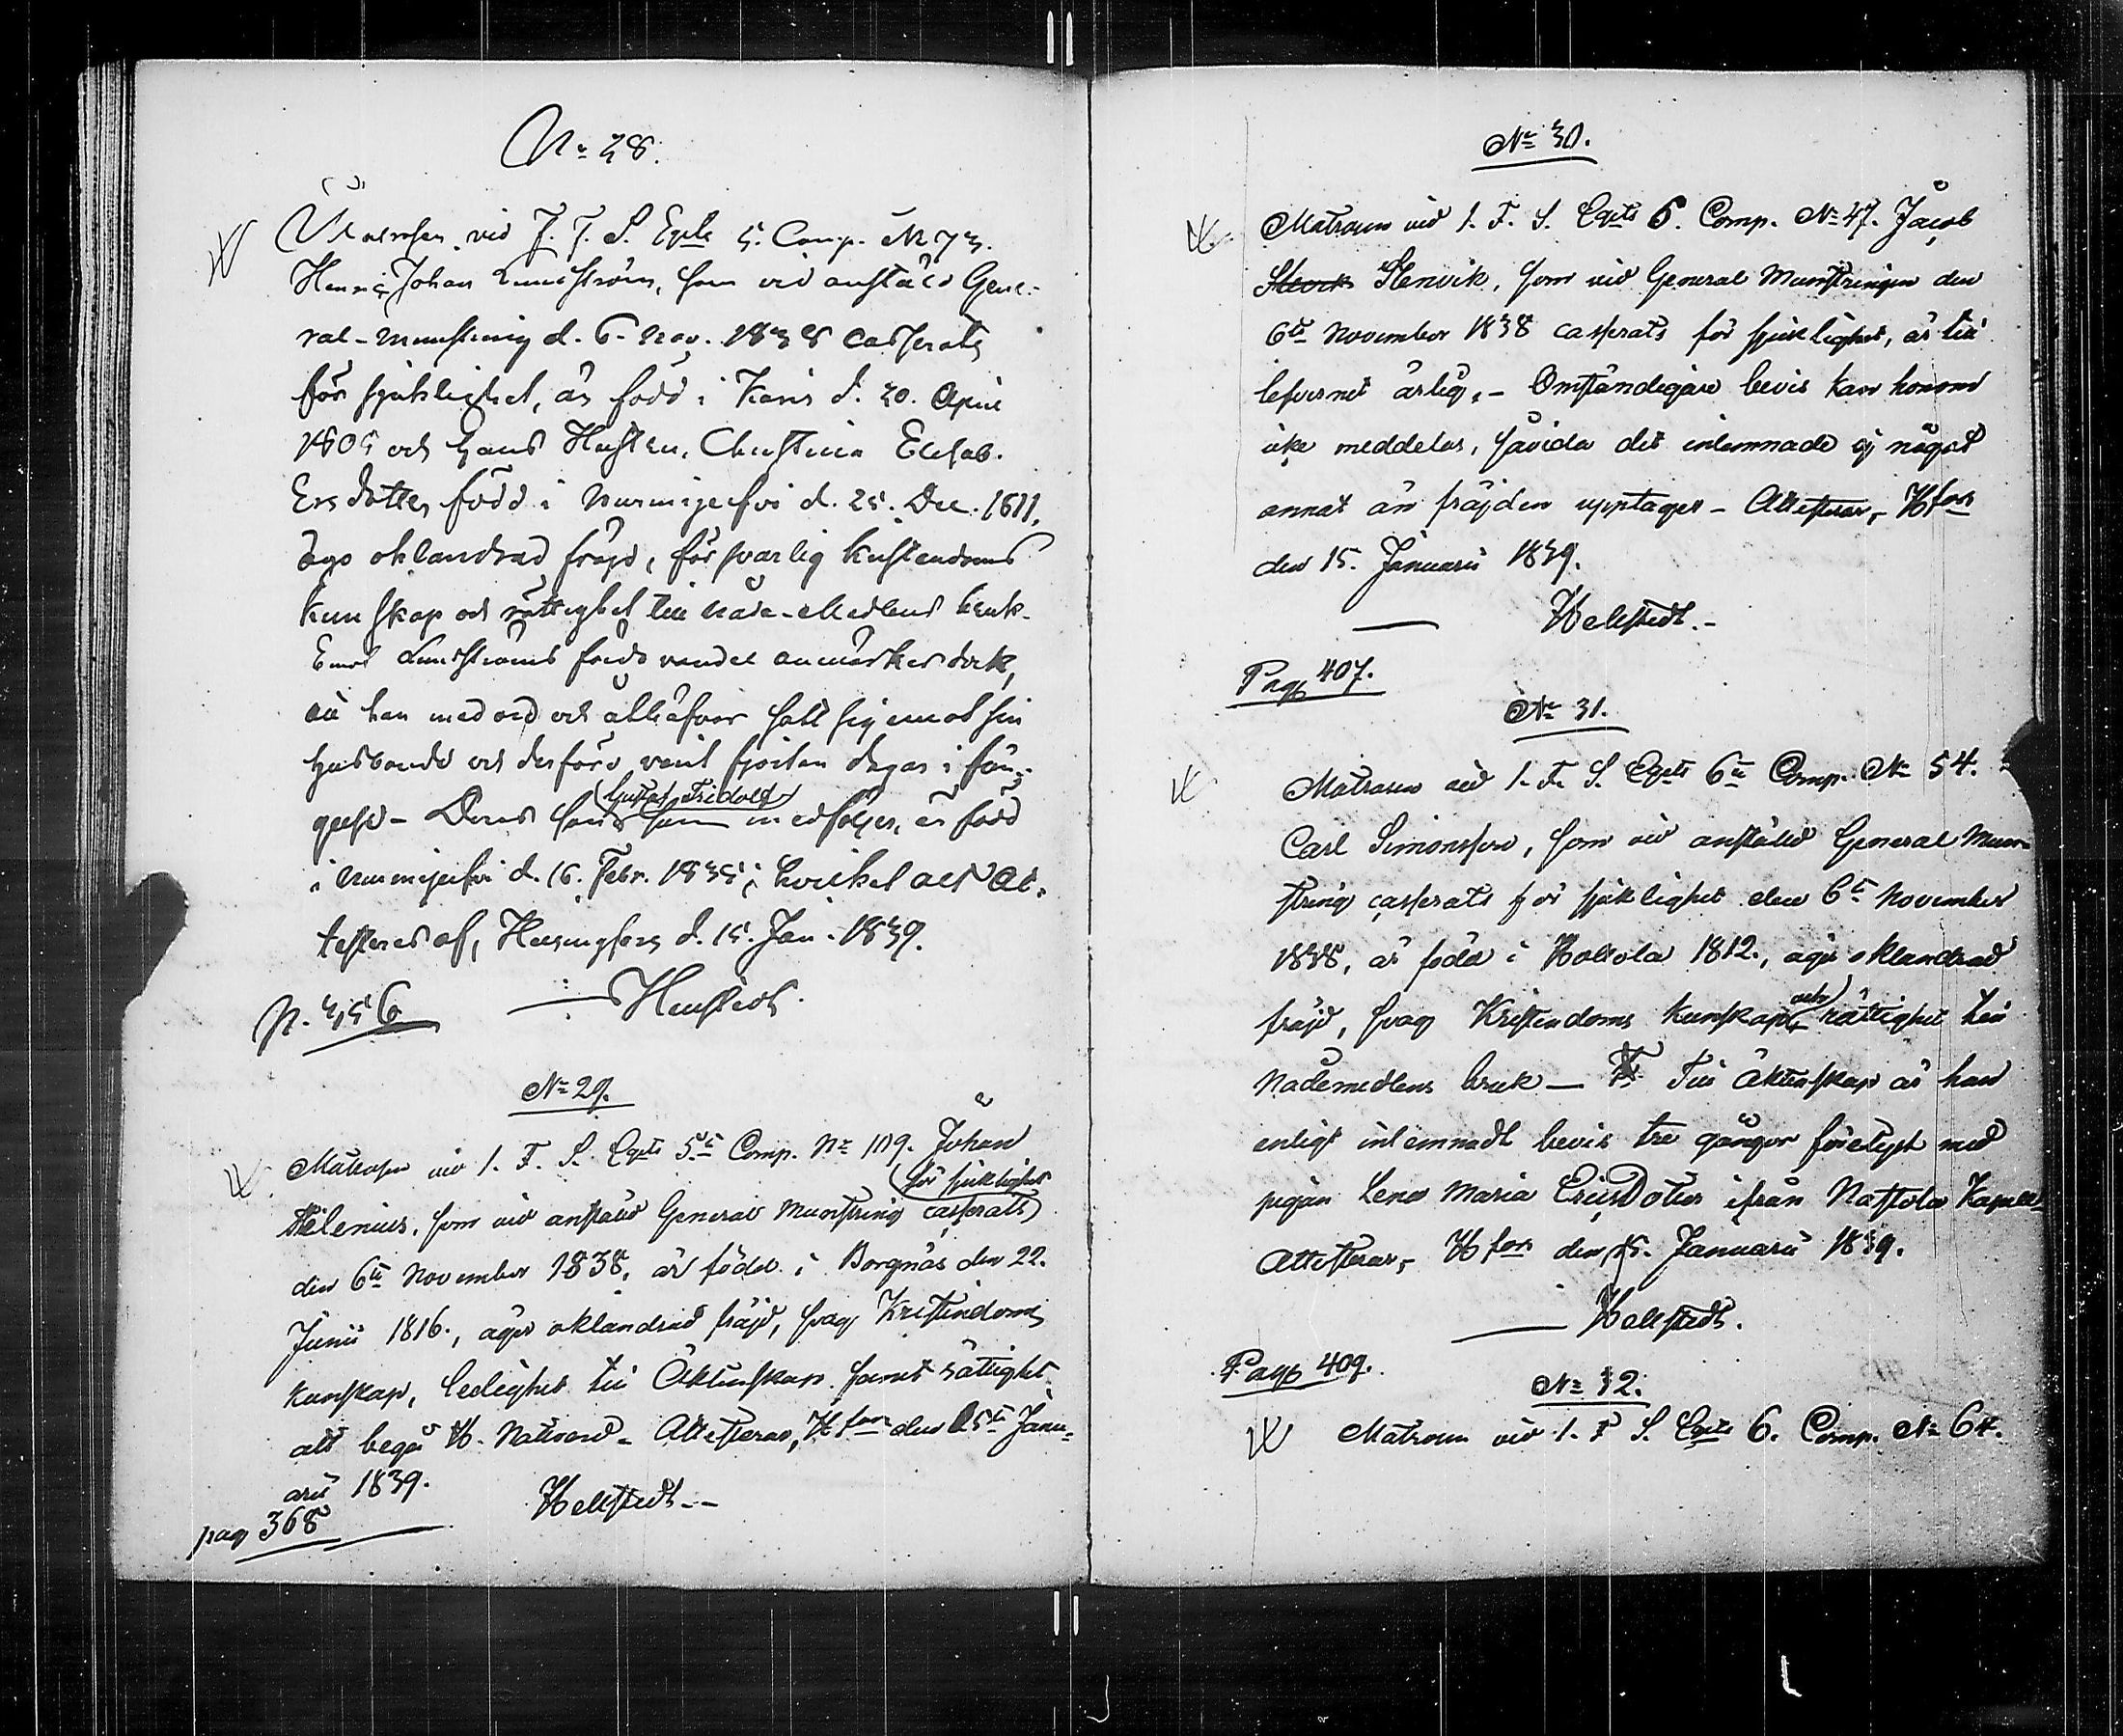 No 28.
Matrosen vid 1. F. S. Eqts 5. Comp. No 73.
Henric Johan Lundström, som vid anstäld Gene-
ral-Munstring d. 6 Nov. 1838 casserats
för sjuklighet, är född i Karis d. 20. April
1805 och hans Hustru, Christina Elisab.
Ersdotter född i Nurmijerfvi d. 25. Dec. 1811.
äga oklandrad frejd, försvarlig kristendoms
kunskap och rättighet till Nåde-Medlens bruk.
Emot Lundströms vandel anmärkes dock,
att han med ord och åthäfvor satt sig emot sin
husbonde och derföre varit fjorton dagar i fän-
gelse - Deras son Gustaf Fridolf som medföljer, är född
i Nurmijerfvi d. 16. Febr. 1835; hvilket allt At-
testeras af, Helsingfors d. 15. Jan. 1839.
Hellstedt.
p. 356
No 29.
Matrosen vid 1. F. S. Eqts 5te Comp. No 109. Johan
Stelenius, som vid anstäld General Munstring för sjuklighet casserats
den 6te November 1838, är född i Borgnäs den 22.
Junii 1816., äger oklandrad fräjd, svag Kristendoms
kunskap, ledighet till Äktenskap samt rättighet
att begå H. Nattvard - Attesteras, Hfors den 15te Janu-
arii 1839.
Hellstedt.-
pag 368
No 30.
Matrosen vid 1. F. S. Eqts 6. Comp. No 47. Jacob
Stenvik, som vid General Munstringen den
6te November 1838 casserats för sjuklighet, är till
lefvernet ärlig. - Omständigare bevis kan honom
icke meddelas, såvida det inlemnade ej något
annat än fräjden upptager - Attesteras, Hfors
den 15. Januarii 1839.
Hellstedt.-
Pag 407.
No 31.
Matrosen vid 1. F. S. Eqts 6te Comp. No 54.
Carl Simonsson, som vid anstäld General Mun-
string casserats för sjuklighet den 6te November
1838, är född i Hollola 1812., äger oklandrad
fräjd, svag Kristendoms kunskap och rättighet till
Nådemedlens bruk - Till Äktenskap är han
enligt inlemnadt bevis tre gånger förelyst med
pigan Lena Maria Ericsdotter ifrån Nastola Kapell
Attesteras, Hfors den 15. Januarii 1839.
Hellstedt.
Pag 409.
No 32.
Matrosen vid 1. F S. Eqts 6. Comp. No 64.